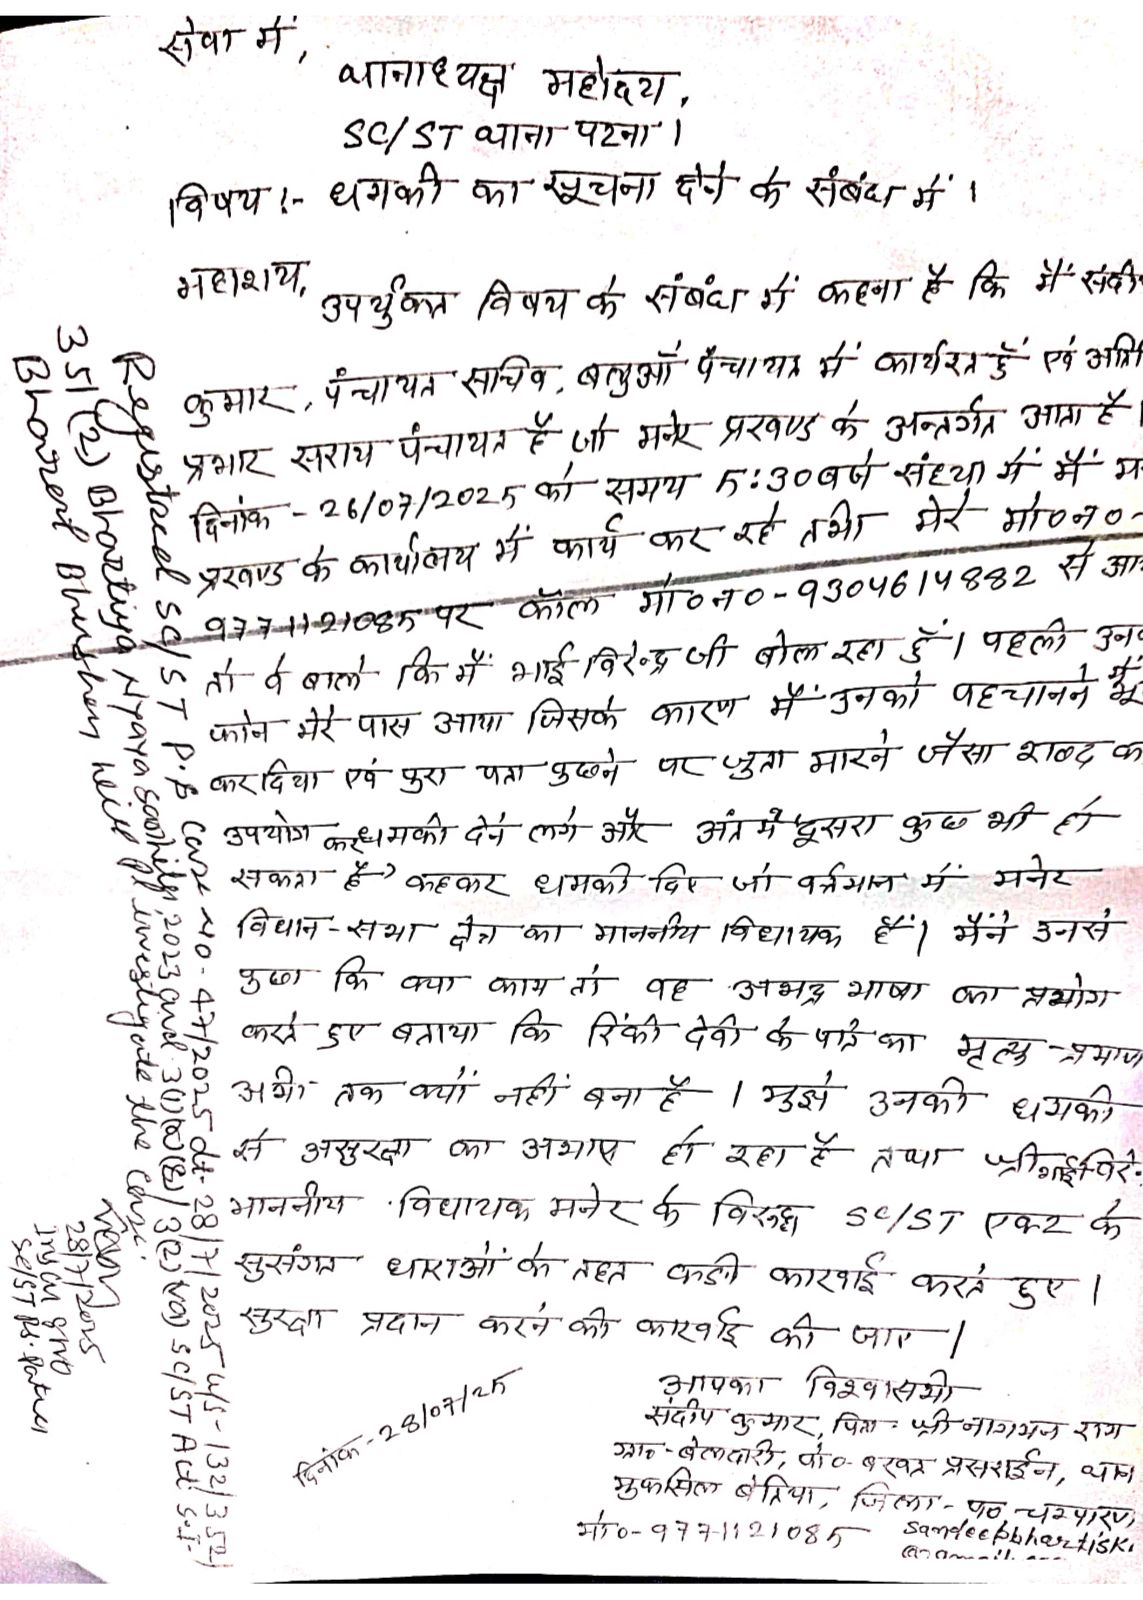 सेवा में,
थानाध्यक्ष महोदय,
SC/ST थाना पटना।
विषय :- धमकी का सूचना देने के संबंध में।
महाशय,
उपर्युक्त विषय के संबंध में कहना है कि मैं संदी
कुमार, पंचायत सचिव, बलुआँ पंचायत में कार्यरत हुँ एवं अति
प्रभार सराय पंचायत है जो मनेर प्रखण्ड के अन्तर्गत आता है।
दिनांक - 26/07/2025 को समय 5:30 बजे संध्या में मैं म
प्रखण्ड के कार्यालय में कार्य कर रहे तभी मेरे मो०न०-
9771121085 पर कॉल मो०न०-9304614882 से आ
तो वे बोले कि मैं भाई विरेन्द्र जी बोल रहा हुँ। पहली उन
फोन मेरे पास आया जिसके कारण मैं उनको पहचानने में भू
कर दिया एवं पुरा पता पुछने पर जुता मारने जैसा शब्द क
उपयोग कर धमकी देने लगे और अंत में "दूसरा कुछ भी हो
सकता है" कहकर धमकी दिए जो वर्तमान में मनेर
विधान-सभा क्षेत्र का माननीय विधायक हैं। मैंने उनसे
पुछा कि क्या काम तो वह अभद्र भाषा का प्रयोग
करते हुए बताया कि रिंकी देवी के पति का मृत्यु-प्रमाण
अभी तक क्यों नहीं बना है। मुझे उनकी धमकी
से असुरक्षा का अभाष हो रहा है तथा श्री भाई विरे
माननीय विधायक मनेर के विरूद्ध SC/ST एक्ट के
सुसंगत धाराओं के तहत कड़ी कारवाई करते हुए।
सुरक्षा प्रदान करने की कारवाई की जाए।
आपका विश्वासभी
संदीप कुमार, पिता- श्री नागमन राम
ग्राम- बेलदारी, पो०- बरवत प्रसराईन, थाना
मुफसिल बेतिया, जिला- प० चम्पारण,
मो०-9771121085
sandeepbhartiski
दिनांक-28/07/25
Registered SC/ST P.S Case No- 47/2025 dt- 28/7/2025 u/s- 132/352/
351(2) Bhartiya Nyaya Sanhita, 2023 and 3(1)(r)(s)/3(2)(va) SC/ST Act. S.I.
Bhareet Bhushan will investigate the case.
28/7/2025
SC/ST P.S. Patna